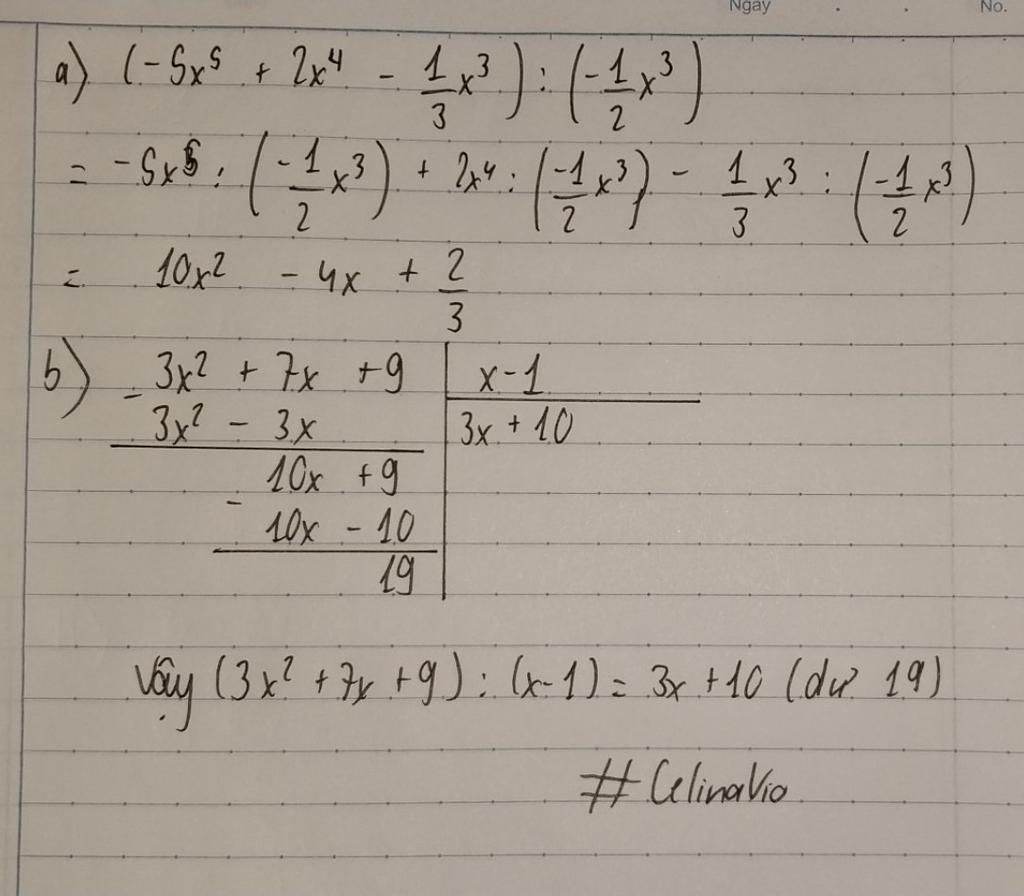 Ngày No.
a) (-5x⁵ + 2x⁴ - 1/3 x³) : (-1/2 x³)
= -5x⁵ : (-1/2 x³) + 2x⁴ : (-1/2 x³) - 1/3 x³ : (-1/2 x³)
= 10x² - 4x + 2/3
b) - 3x² + 7x + 9 | x - 1
3x² - 3x | 3x + 10
- 10x + 9
10x - 10
19
Vậy (3x² + 7x + 9) : (x - 1) = 3x + 10 (dư 19)
# CelinaVio